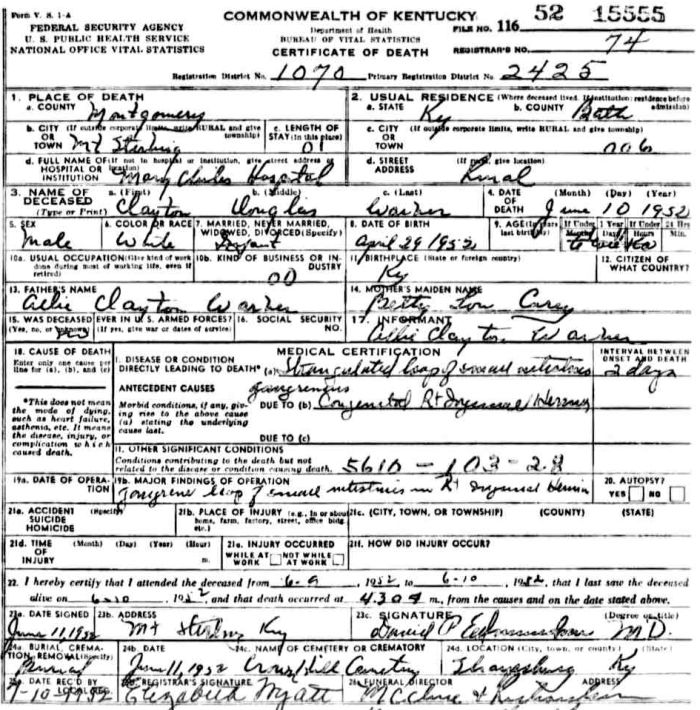 Form V. S. 1-A
FEDERAL SECURITY AGENCY
U. S. PUBLIC HEALTH SERVICE
NATIONAL OFFICE VITAL STATISTICS
COMMONWEALTH OF KENTUCKY
Department of Health
BUREAU OF VITAL STATISTICS
CERTIFICATE OF DEATH
FILE NO. 116 52 15555
REGISTRAR'S NO. 74
Registration District No. 1070 Primary Registration District No. 2425
1. PLACE OF DEATH
a. COUNTY Montgomery
2. USUAL RESIDENCE (Where deceased lived. If institution: residence before admission)
a. STATE Ky b. COUNTY Bath
b. CITY (If outside corporate limits, write RURAL and give township)
OR TOWN Mt Sterling
c. LENGTH OF STAY (in this place) 01
c. CITY (If outside corporate limits, write RURAL and give township)
OR TOWN 006
d. FULL NAME OF (If not in hospital or institution, give street address or location)
HOSPITAL OR INSTITUTION Mary Chiles Hospital
d. STREET ADDRESS (If rural, give location) Rural
3. NAME OF DECEASED (Type or Print)
a. (First) Clayton b. (Middle) Douglas c. (Last) Warner
4. DATE OF DEATH (Month) (Day) (Year) June 10 1952
5. SEX Male
6. COLOR OR RACE White
7. MARRIED, NEVER MARRIED, WIDOWED, DIVORCED (Specify) Infant
8. DATE OF BIRTH April 29 1952
9. AGE (In years last birthday) If Under 1 Year Months Days If Under 24 Hrs Hours Min.
10a. USUAL OCCUPATION (Give kind of work done during most of working life, even if retired)
10b. KIND OF BUSINESS OR INDUSTRY 00
11. BIRTHPLACE (State or foreign country) Ky
12. CITIZEN OF WHAT COUNTRY?
13. FATHER'S NAME Ollie Clayton Warner
14. MOTHER'S MAIDEN NAME Betty Lou Carey
15. WAS DECEASED EVER IN U. S. ARMED FORCES?
(Yes, no, or unknown) (If yes, give war or dates of service)
16. SOCIAL SECURITY NO.
17. INFORMANT Ollie Clayton Warner
18. CAUSE OF DEATH
Enter only one cause per line for (a), (b), and (c)
MEDICAL CERTIFICATION
INTERVAL BETWEEN ONSET AND DEATH
I. DISEASE OR CONDITION
DIRECTLY LEADING TO DEATH* (a) Strangulated loop of small intestines 2 days
gangrenous
*This does not mean the mode of dying, such as heart failure, asthenia, etc. It means the disease, injury, or complication which caused death.
ANTECEDENT CAUSES
Morbid conditions, if any, giving rise to the above cause (a) stating the underlying cause last.
DUE TO (b) Congenital Rt Inguinal Hernia
DUE TO (c)
II. OTHER SIGNIFICANT CONDITIONS
Conditions contributing to the death but not related to the disease or condition causing death.
5610-103-28
19a. DATE OF OPERATION
19b. MAJOR FINDINGS OF OPERATION
loop of small intestines in Rt Inguinal Hernia
20. AUTOPSY?
YES NO
21a. ACCIDENT (Specify)
SUICIDE
HOMICIDE
21b. PLACE OF INJURY (e.g., in or about home, farm, factory, street, office bldg., etc.)
21c. (CITY, TOWN, OR TOWNSHIP) (COUNTY) (STATE)
21d. TIME OF INJURY (Month) (Day) (Year) (Hour) m.
21e. INJURY OCCURRED
WHILE AT WORK NOT WHILE AT WORK
21f. HOW DID INJURY OCCUR?
22. I hereby certify that I attended the deceased from 6-9, 1952 to 6-10, 1952, that I last saw the deceased
alive on 6-10, 1952, and that death occurred at m., from the causes and on the date stated above.
23a. DATE SIGNED June 11, 1952
23b. ADDRESS Mt Sterling Ky
23c. SIGNATURE (Degree or title) David P. M D.
24a. BURIAL, CREMATION, REMOVAL (Specify)
24b. DATE June 11, 1952
24c. NAME OF CEMETERY OR CREMATORY Hill Cemetery
24d. LOCATION (City, town, or county) (State) Sharpsburg Ky
25a. DATE REC'D BY LOCAL REG. 7-10-1952
REGISTRAR'S SIGNATURE Elizabeth Wyatt
26. FUNERAL DIRECTOR ADDRESS